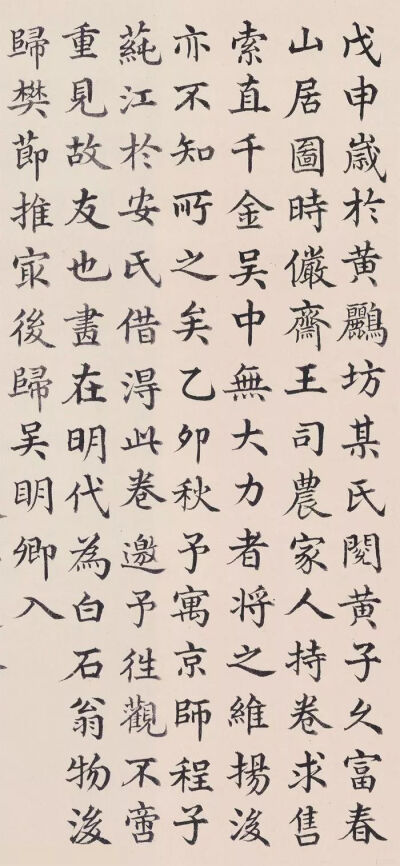 戊申歲於黃鸝坊某氏閱黃子久富春
山居圖時儼齋王司農家人持卷求售
索直千金吳中無大力者將之維揚後
亦不知所之矣乙卯秋予寓京師程子
蒓江於安氏借得此卷邀予往觀不啻
重見故友也畫在明代為白石翁物後
歸樊莭推㝡後歸吳明卿入